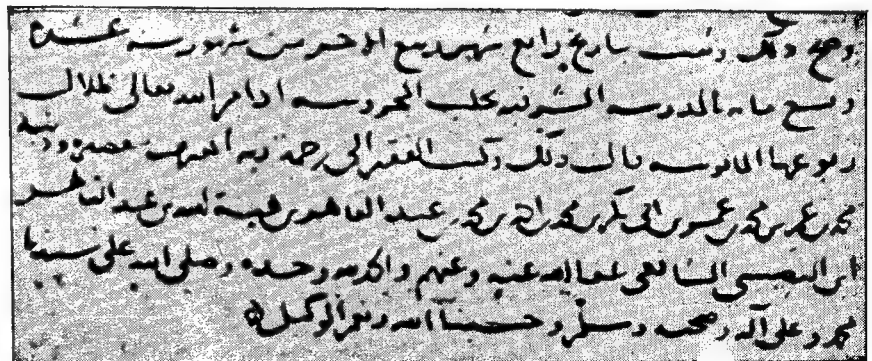 وصح ذلك وثبت بتاريخ رابع شهر ربيع الآخر من شهور سنه عشرة
وتسع مايه بالمدرسه الشرفيه بحلب المحروسه ادام الله تعالى ظلال
ربوعها المانوسه قال ذلك وكتب الفقير الى رحمة ربه المعترف
محمد بن عمر بن محمد بن عمر بن ابى بكر بن محمد بن احمد بن محمد بن عبد القاهر بن هبة الله بن عبد القاهر
ابن النصيبى الشافعى عفا الله عنه وعنهم والحمد لله وحده وصلى الله على سيدنا
محمد وعلى آله وصحبه وسلم وحسبنا الله ونعم الوكيل